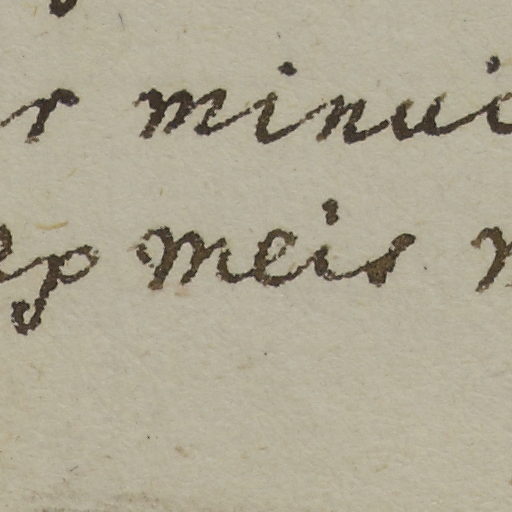 r minui
ep meis